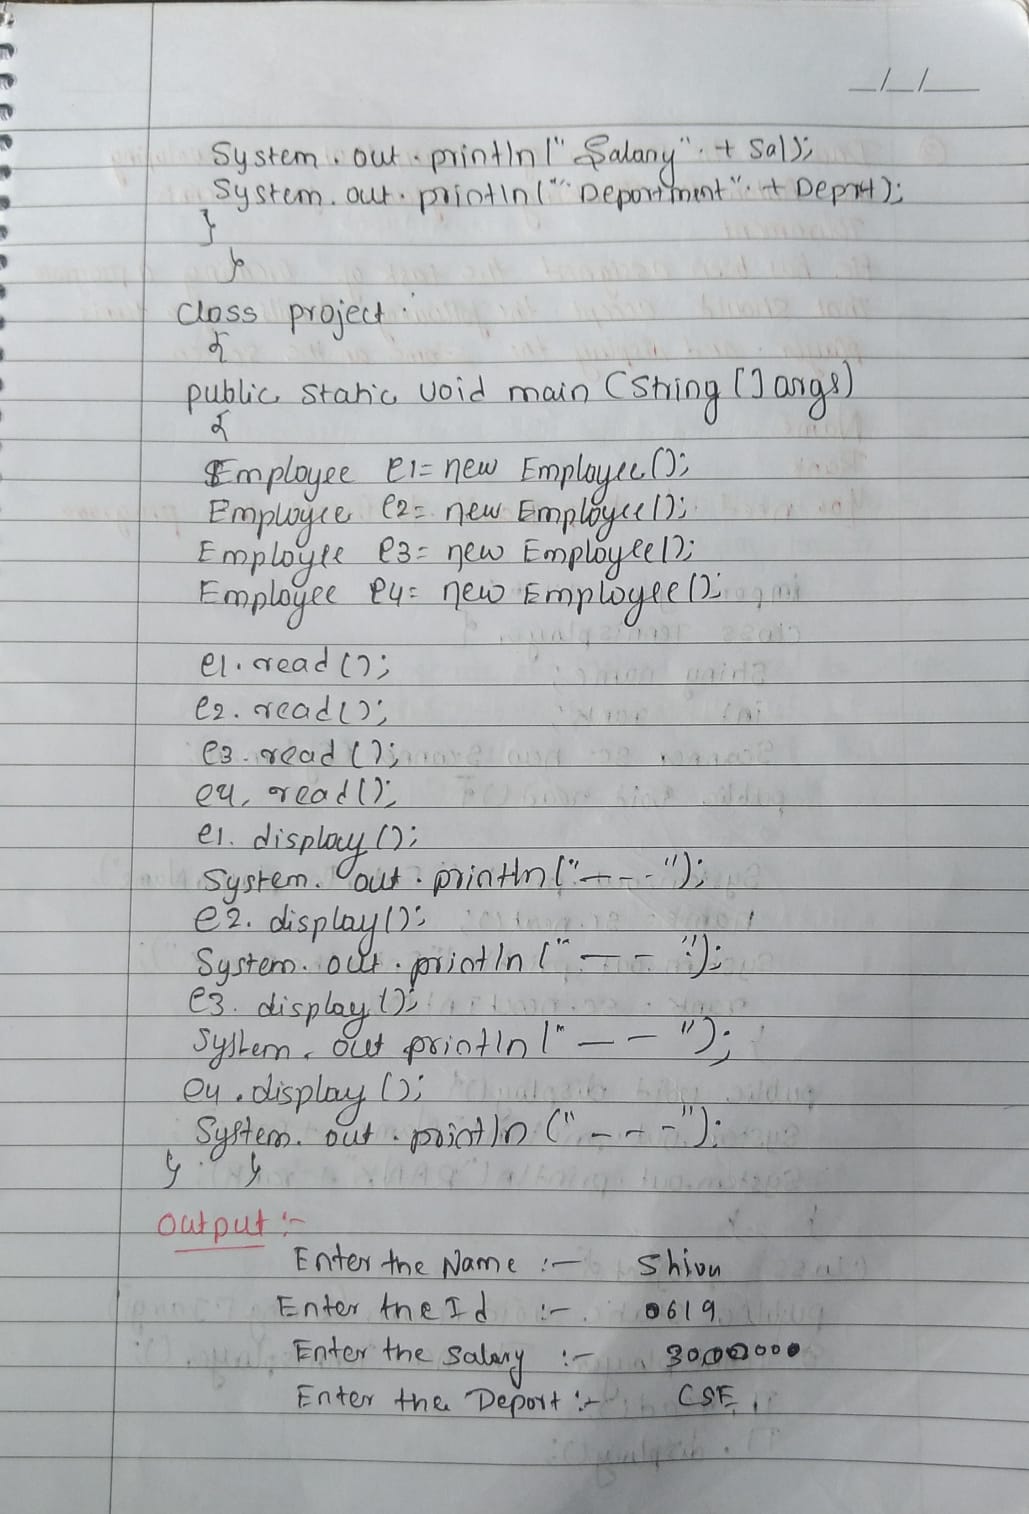 __/__/____
System. out. println (" Salary" + Sal);
System. out. println (" Deportment" + Deprt);
}
}
class project
{
public static void main (String [] args)
{
Employee e1= new Employee();
Employee e2= new Employee();
Employee e3= new Employee();
Employee e4= new Employee();
e1. read ();
e2. read();
e3. read ();
e4. read();
e1. display ();
System. out. println ("---");
e2. display();
System. out. println (" -- ");
e3. display ();
System. out println (" -- ");
e4. display ();
System. out. println (" --- ");
} }
output :-
Enter the Name :- Shivu
Enter the Id :- 0619
Enter the Salary :- 3000000
Enter the Deport :- CSE